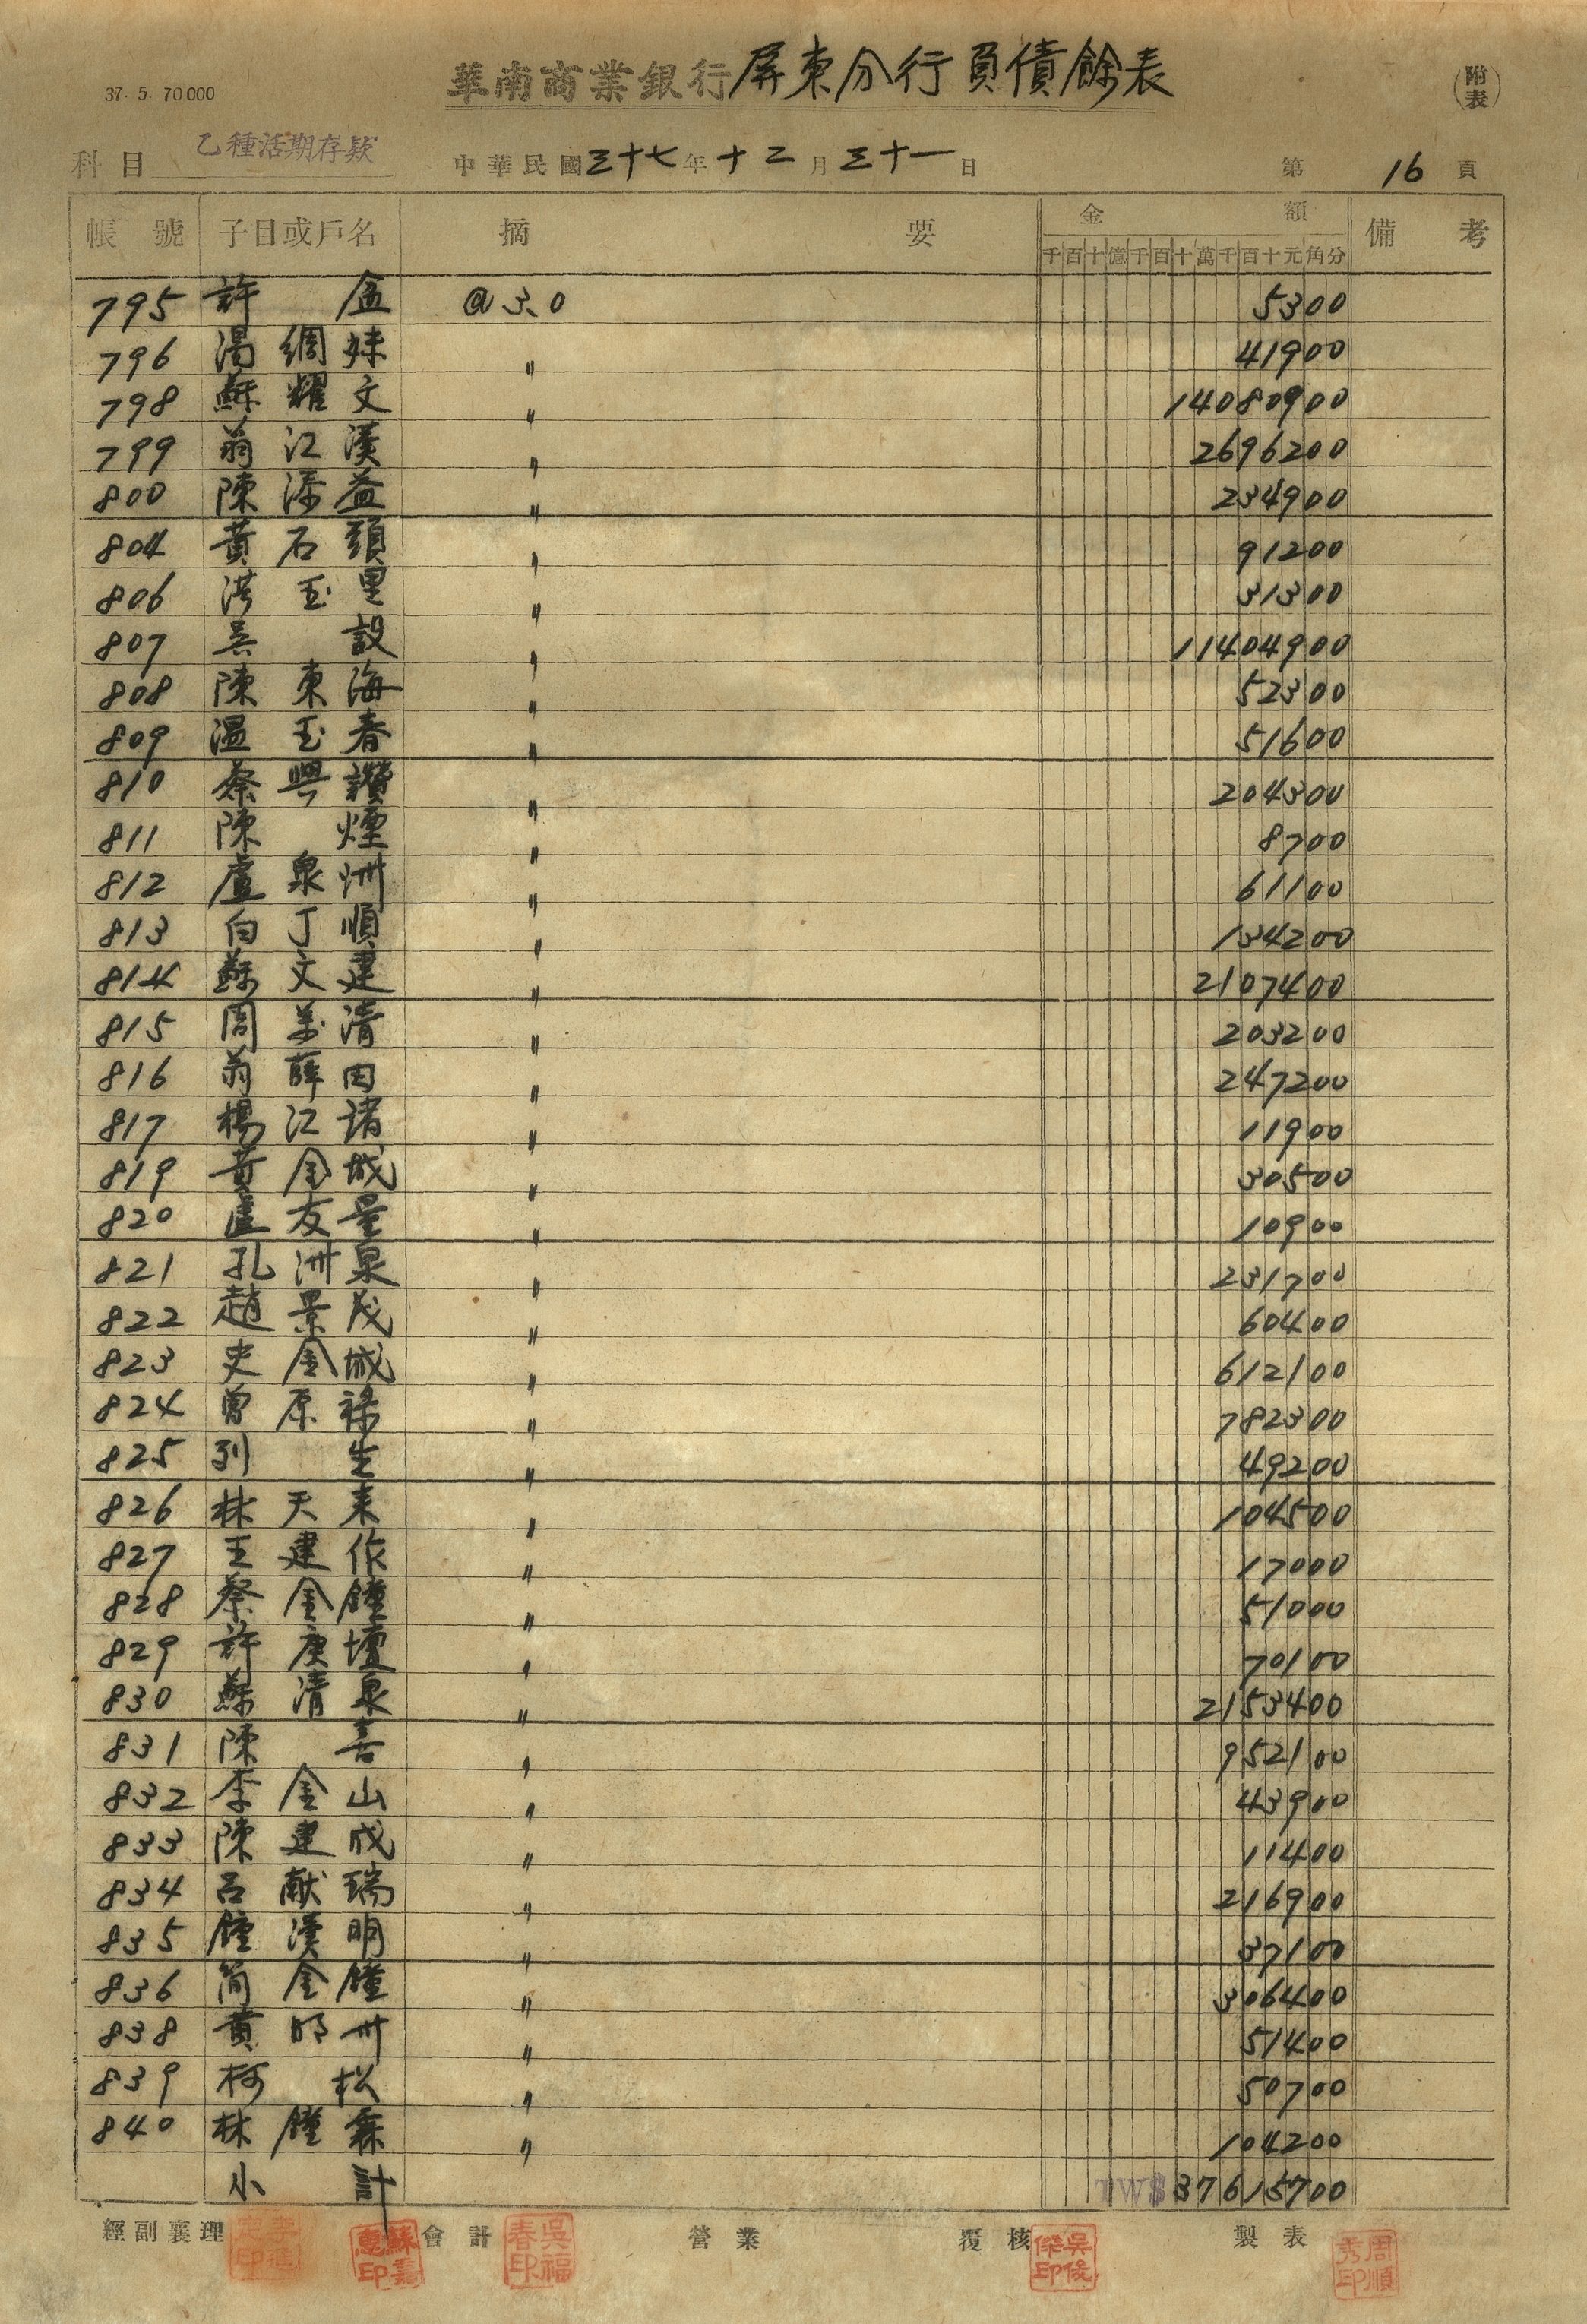 37. 5. 70000
華南商業銀行屏東分行負債餘表
(附表)
科目 乙種活期存款 中華民國三十七年十二月三十一日 第 16 頁
帳號 子目或戶名 摘要 金額 備考
千百十億千百十萬千百十元角分
795 許 金 @3.0 5300
796 湯綢妹 〃 41900
798 蘇耀文 〃 14080900
799 翁江漢 〃 2696200
800 陳添益 〃 234900
804 黃石頭 〃 91200
806 洪玉里 〃 31300
807 吳 設 〃 11404900
808 陳東海 〃 52300
809 溫玉春 〃 51600
810 蔡興讚 〃 204300
811 陳 煙 〃 8700
812 盧泉洲 〃 61100
813 白丁順 〃 134200
814 蘇文建 〃 2107400
815 周萬清 〃 203200
816 翁薛因 〃 247200
817 楊江諸 〃 11900
819 黃金城 〃 30500
820 盧友量 〃 10900
821 孔洲泉 〃 231700
822 趙景茂 〃 60400
823 史金城 〃 612100
824 曾原祿 〃 782300
825 列 生 〃 49200
826 林天來 〃 104500
827 王建作 〃 17000
828 蔡金鐘 〃 51000
829 許庚壇 〃 70100
830 蘇清泉 〃 2153400
831 陳 喜 〃 952100
832 李金山 〃 43900
833 陳建成 〃 11400
834 呂献瑞 〃 216900
835 鐘漢明 〃 37100
836 簡金鐘 〃 306400
838 黃明卅 〃 51400
839 柯 松 〃 50700
840 林鐘霖 〃 104200
小計 TW$ 37615700
經副襄理 會計 營業 覆核 製表
蘇嘉惠印 吳福春印 吳俊傑印 周順秀印